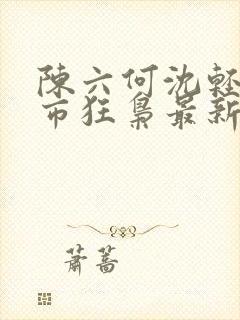 陳六何沈輕
市狂梟最新
蕭蒿